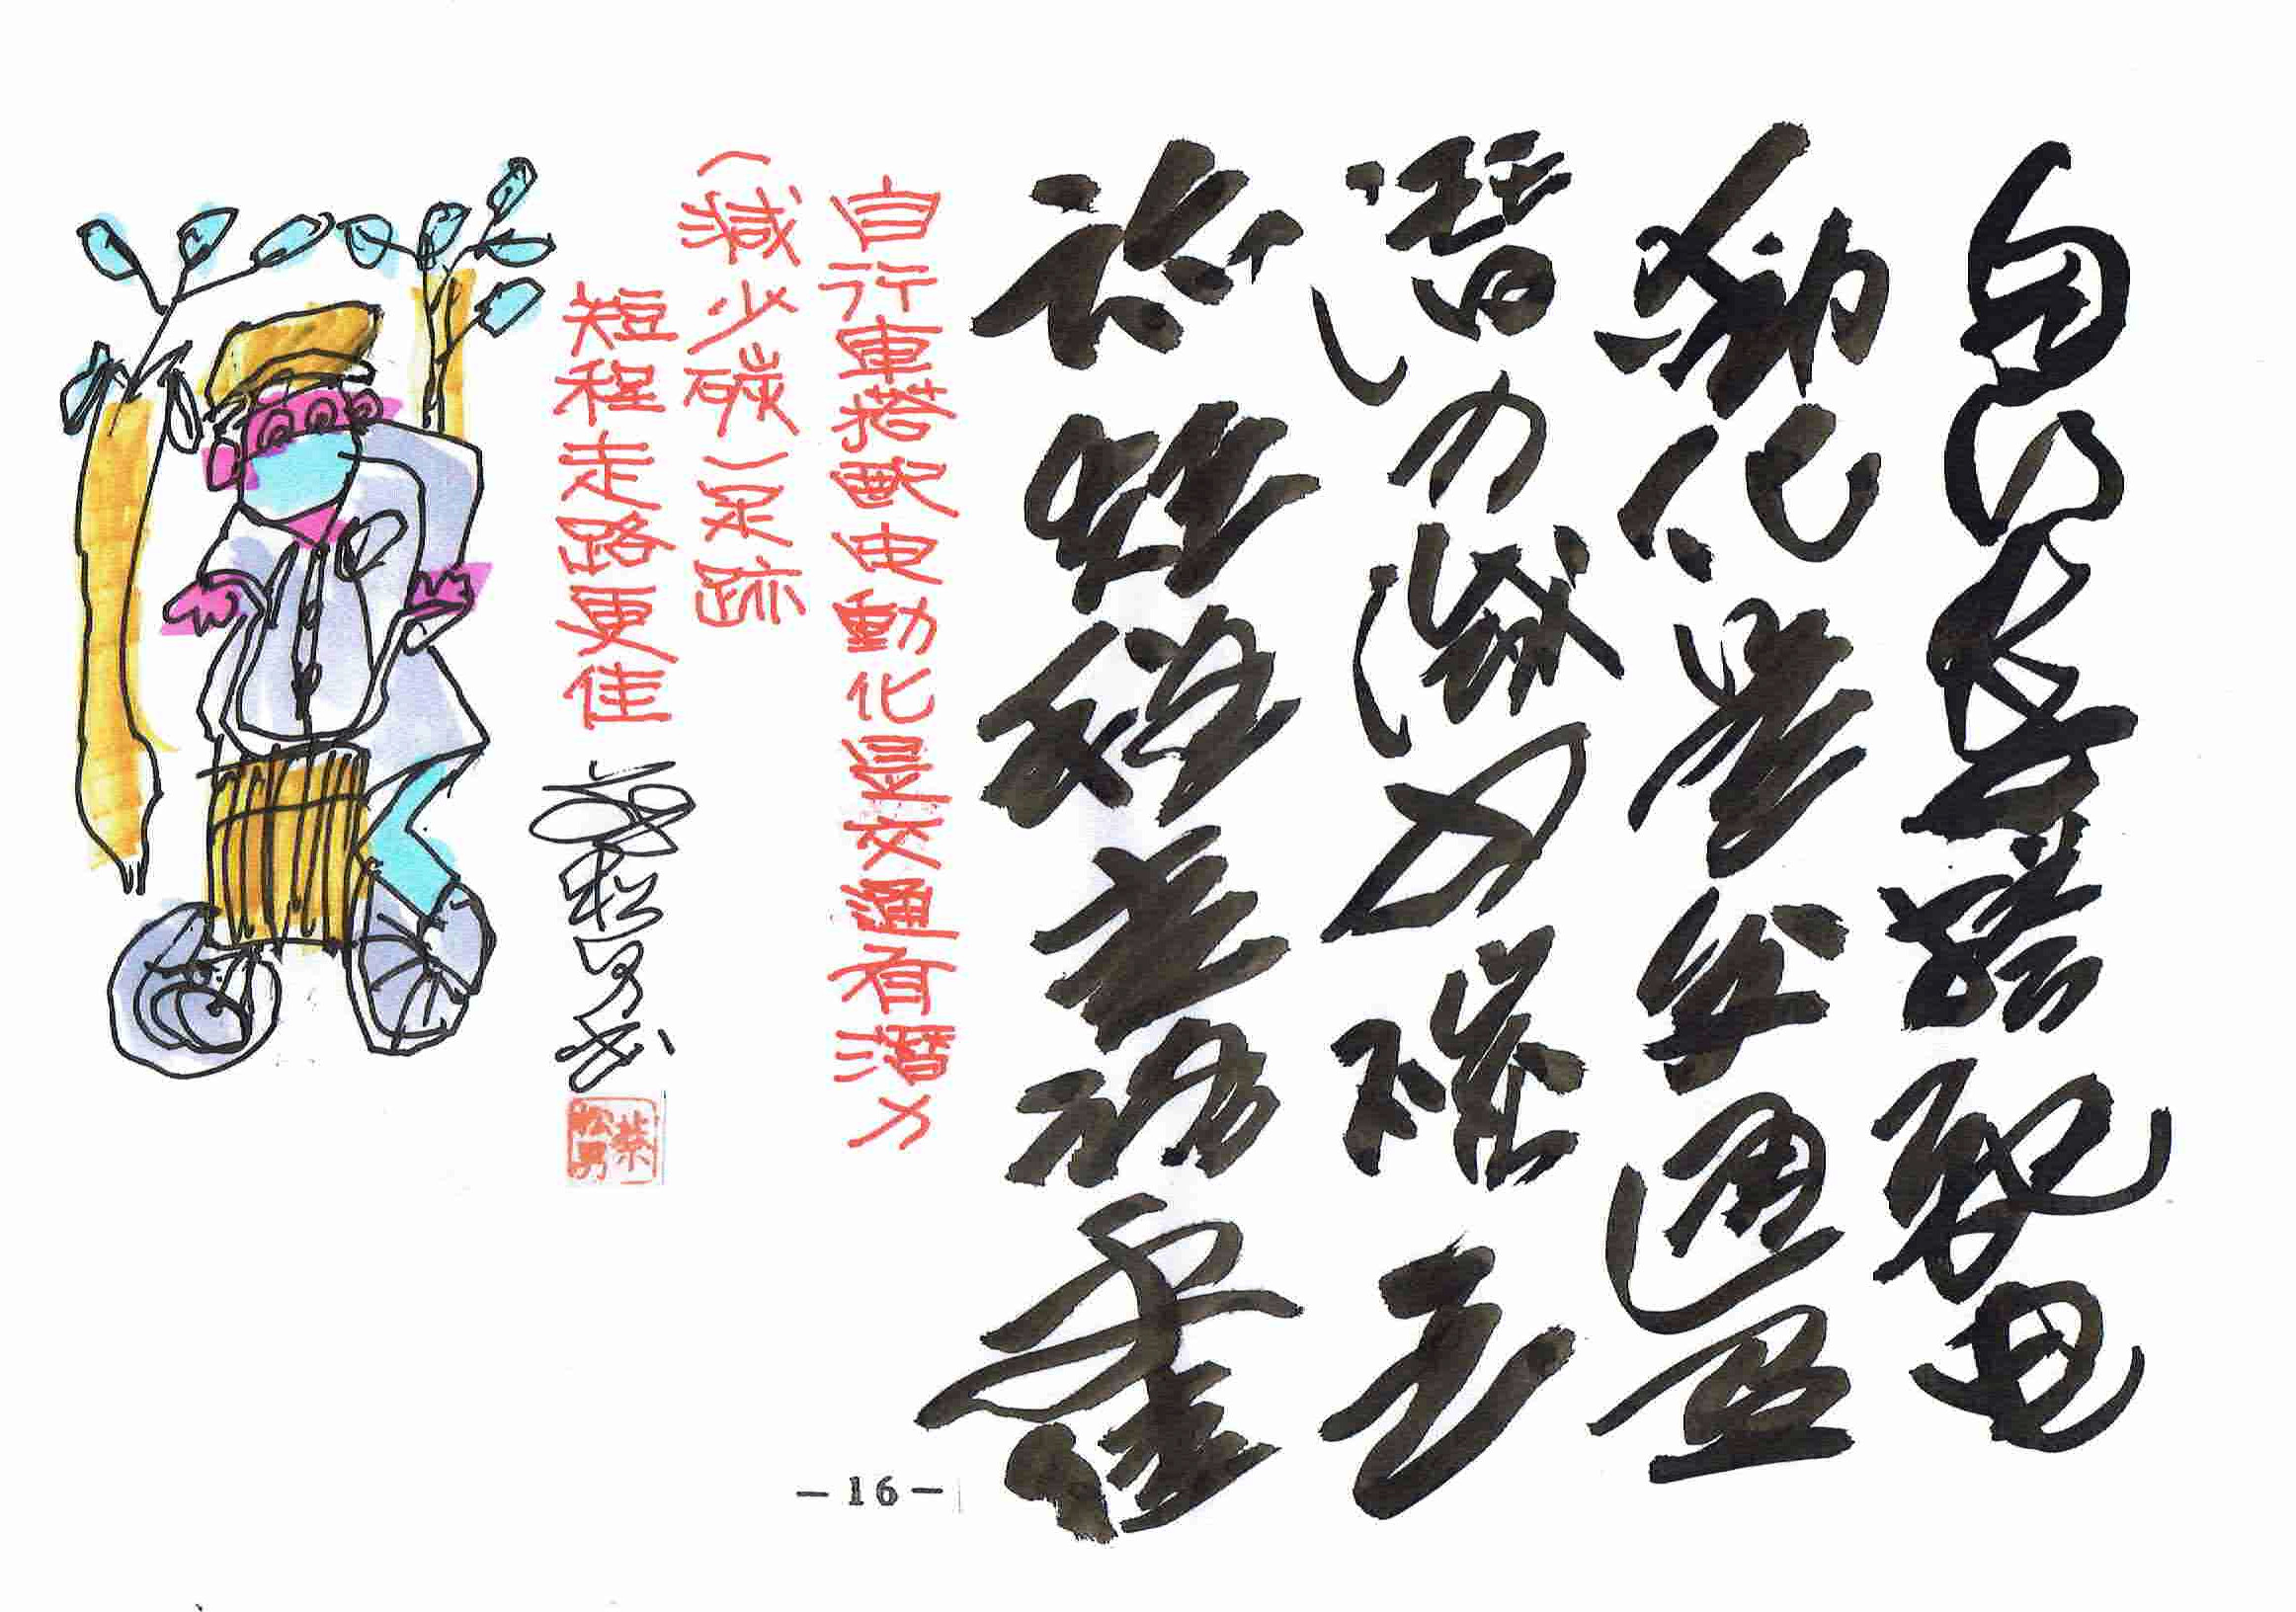 自行車搭配電
動化是交通具
潛力(減少碳足
跡)短程走路更佳
自行車搭配电動化是交通有潛力
(減少碳)足跡
短程走路更佳
松男
-16-